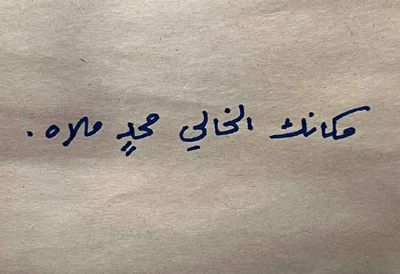 مكانك الخالي محدٍ ملاه.